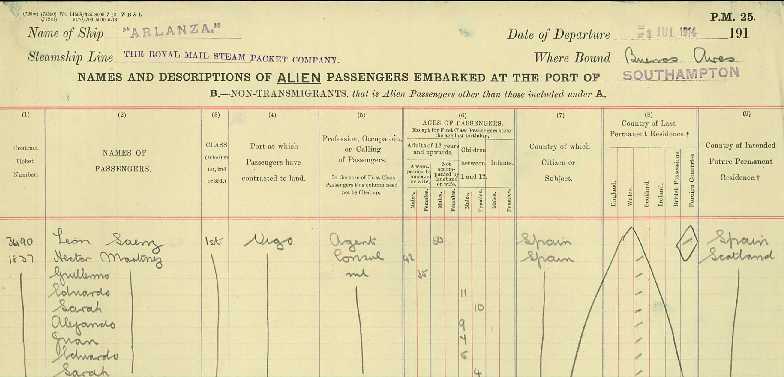 Name of Ship "ARLANZA."
Date of Departure 3 JUL 1914 191
P.M. 25.
Steamship Line THE ROYAL MAIL STEAM PACKET COMPANY.
Where Bound Buenos Aires
NAMES AND DESCRIPTIONS OF ALIEN PASSENGERS EMBARKED AT THE PORT OF SOUTHAMPTON
B.—NON-TRANSMIGRANTS, that is Alien Passengers other than those included under A.
(1) (2) (3) (4) (5) (6) (7) (8) (9)
Contract Ticket Number.
NAMES OF PASSENGERS.
CLASS
Port at which Passengers have contracted to land.
Profession, Occupation, or Calling of Passengers.
AGES OF PASSENGERS.
Adults of 12 years and upwards.
Children between 1 and 12.
Infants.
Males. Females. Males. Females. Males. Females. Males. Females.
Country of which Citizen or Subject.
Country of Last Permanent Residence.†
England. Wales. Scotland. Ireland. British Possessions. Foreign Countries
Country of Intended Future Permanent Residence.†
3490 León Saenz 1st Vigo Agent 50 Spain Spain
1837 Hector Martinez Consul 42 Spain Scotland
Guillermo nil 35
Eduardo 11
Sarah 10
Alejando 9
Juan 4
Eduardo 6
Sarah 4